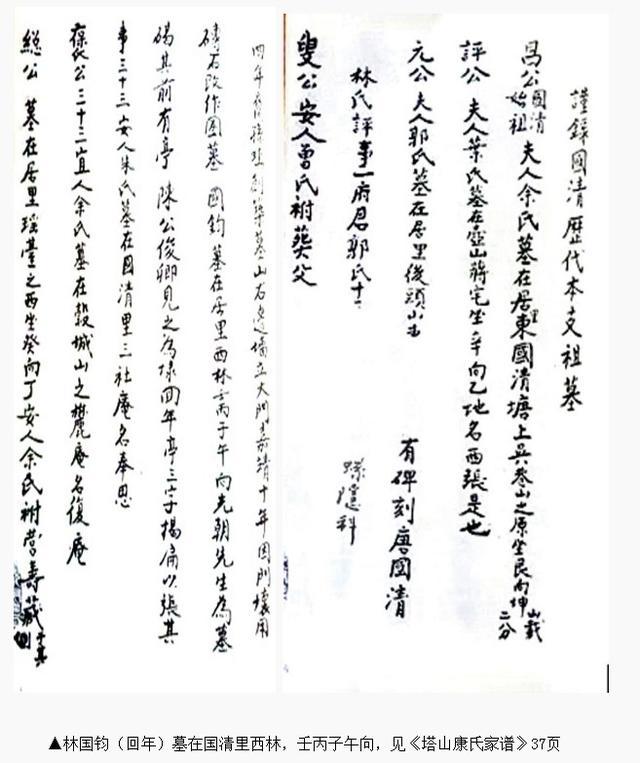 謹錄國清歷代本支祖墓
昌公國清始祖 夫人余氏墓在居里東國清塘上吳峯山之原坐艮向坤
評公 夫人葉氏墓在壺山蔣宅坐辛向乙地名西張是也
元公 夫人郭氏墓在居里後頭山 有碑刻唐國清
林氏評事一府君郭氏十 隱科
叟公 安人曾氏祔葬父
四年 孫 創築墓山右邊墻立大門 嘉靖十年因門壞用
磚石改作圍墓 國鈞墓在居里西林壬丙子午向先朝先生為墓
碣其前有亭 陳公俊卿見之為 回年亭三字揭扁以張其
事三十三安人朱氏墓在國清里三社庵名奉思
葆公三十二宜人余氏墓在穀城山之麓庵名復庵
總公 墓在居里瑶臺之西坐癸向丁安人余氏祔 壽藏
▲林国钧（回年）墓在国清里西林，壬丙子午向，见《塔山康氏家谱》37页